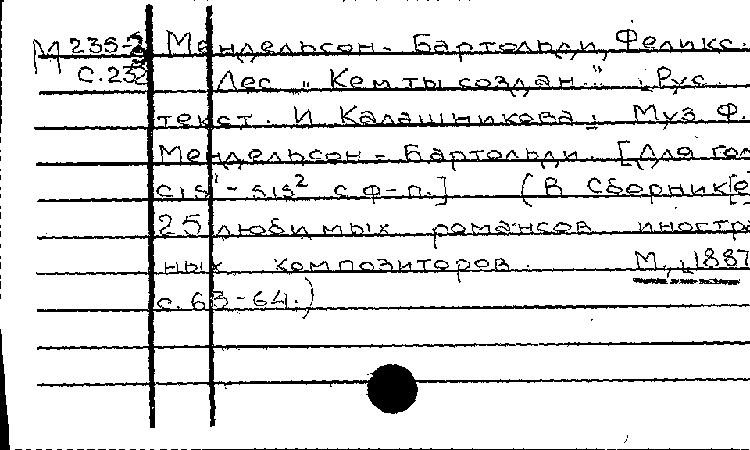 М 235-2 Мендельсон-Бартольди, Феликс.
с. 232 Лес „Кем ты создан." Рус.
текст. И Калашникова, Муз Ф.
Мендельсон-Бартольди. [Для гол
cis¹-sis² с ф-п.] (В Сборник[е]
25 любимых романсов иностра
ных композиторов. М., 1887
с. 63-64.)